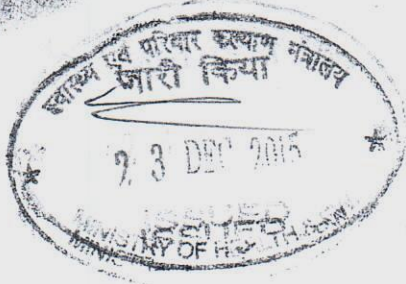 स्वास्थ्य एवं परिवार कल्याण मंत्रालय
जारी किया
23 DEC 2015
ISSUED
MINISTRY OF HEALTH